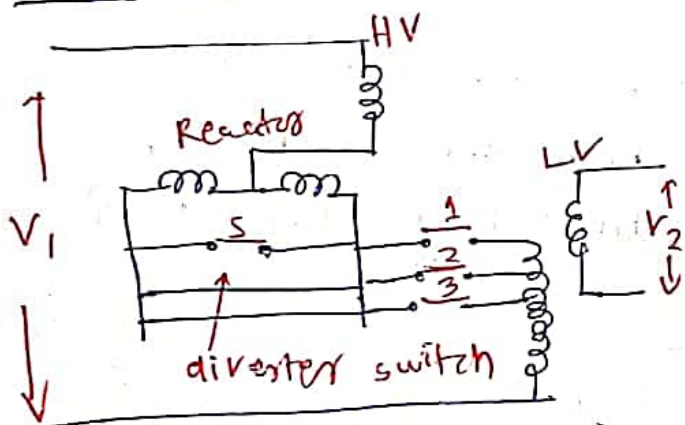 HV
Reactor
LV
V1
S
1
2
3
V2
diverter switch